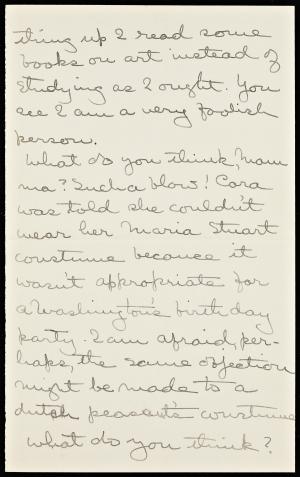 thing up I read some
books on art instead of
studying as I ought. You
see I am a very foolish
person.
What do you think, Mam
ma? Such a blow! Cora
was told she couldn't
wear her Maria Stuart
constume because it
wasn't appropriate for
a Washington's birthday
party. I am afraid, per-
haps, the same objection
might be made to a
dutch peasant's constume
What do you think?